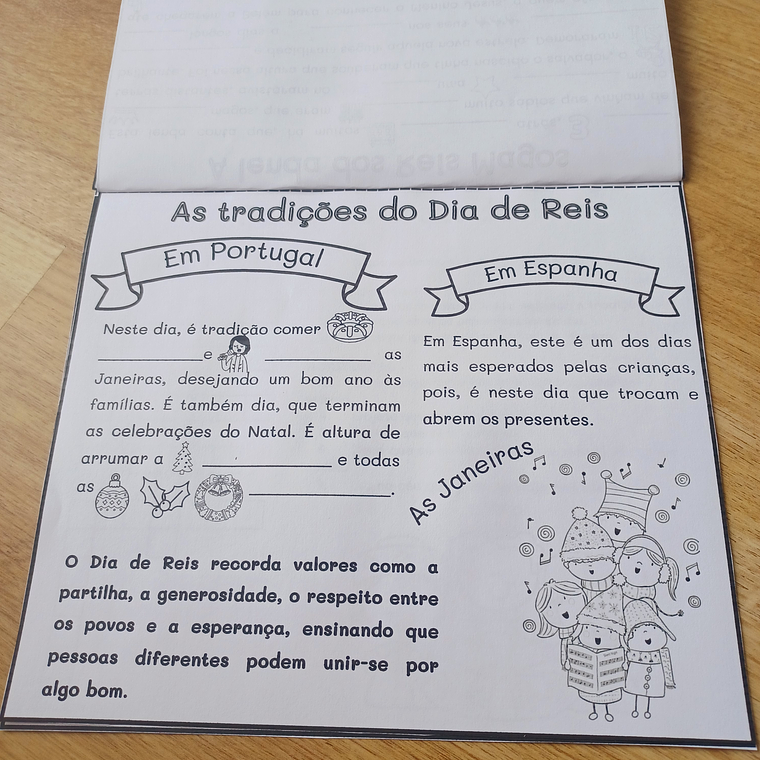 A lenda dos Reis Magos
As tradições do Dia de Reis
Em Portugal
Neste dia, é tradição comer
e as
Janeiras, desejando um bom ano às
famílias. É também dia, que terminam
as celebrações do Natal. É altura de
arrumar a e todas
as .
Em Espanha
Em Espanha, este é um dos dias
mais esperados pelas crianças,
pois, é neste dia que trocam e
abrem os presentes.
As Janeiras
O Dia de Reis recorda valores como a
partilha, a generosidade, o respeito entre
os povos e a esperança, ensinando que
pessoas diferentes podem unir-se por
algo bom.